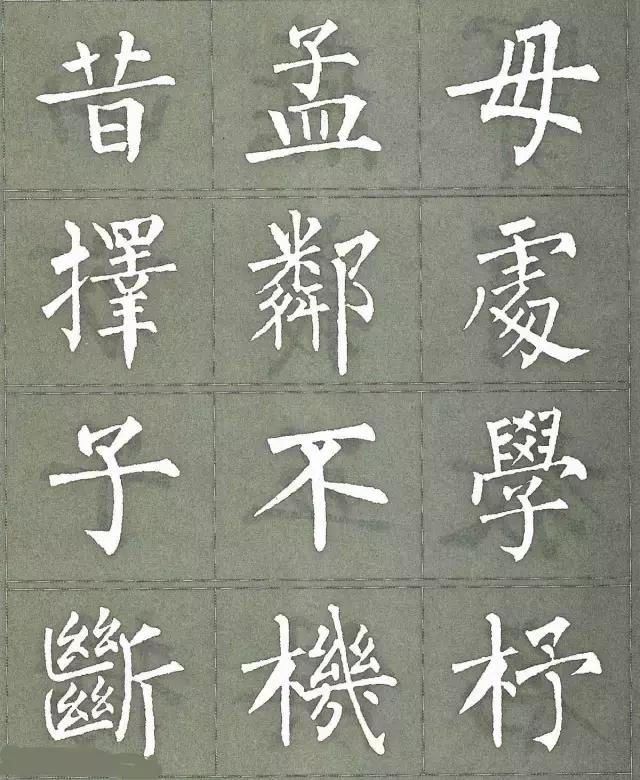 昔孟母
擇鄰處
子不學
斷機杼